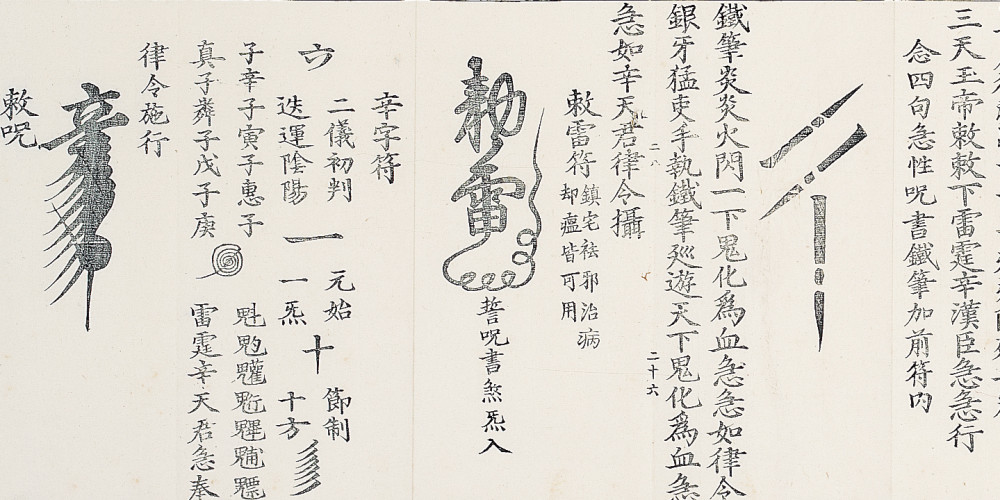 三天王帝敕敕下雷霆辛漢臣急急行
念四句急性呪書鐵筆加前符內
鐵筆炎炎火閃一下鬼化為血急急如律令
銀牙猛吏手執鐵筆巡遊天下鬼化為血急
急如辛天君律令攝
二八
二十六
敕雷符
鎮宅祛邪治病
却瘟皆可用
勅雷
誓呪書煞炁入
辛字符
二儀初判 元始 節制
六 一 十
迭運陰陽 一炁 十方
子辛子寅子惠子
真子粦子戊子庚
雷霆辛天君急奉
律令施行
辛
敕呪